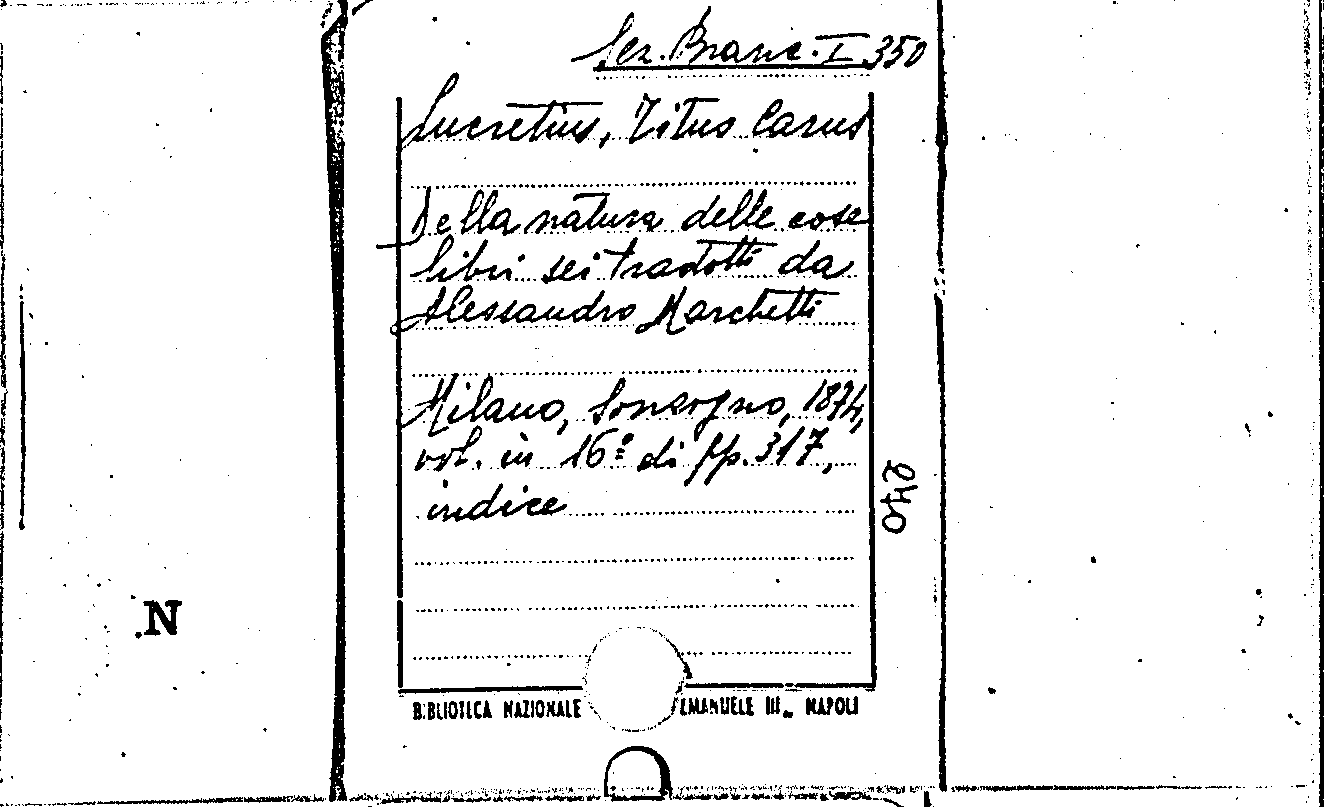 Sez. Branc. I 350
Lucretius, Titus Carus
Della natura delle cose
libri sei tradotti da
Alessandro Marchetti
Milano, Sonzogno, 1874,
vol. in 16º di pp. 317,
indice
240
N
BIBLIOTECA NAZIONALE EMANUELE III - NAPOLI